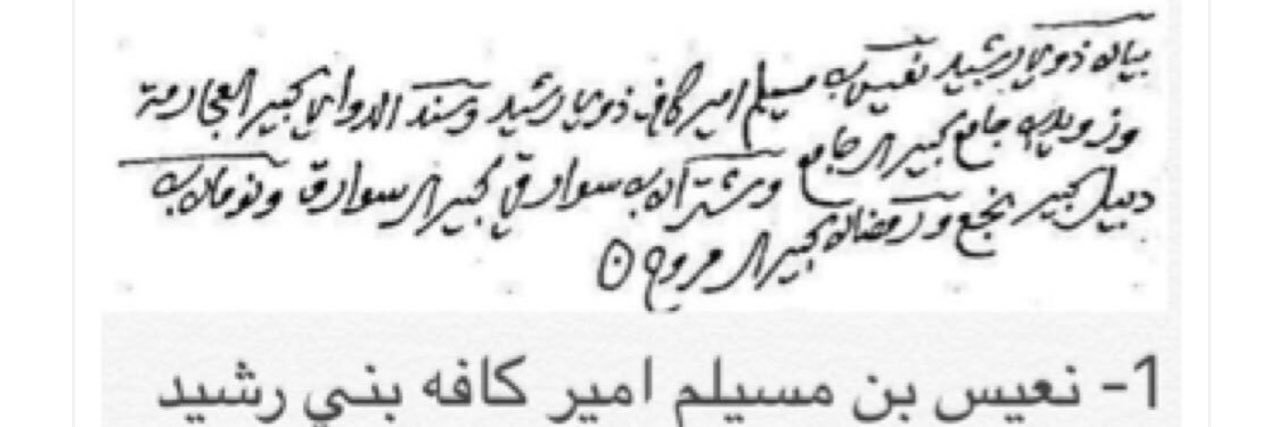 بيان ذوي رشيد نعيس بن مسيلم امير كافة ذوي رشيد وسند الدواي كبير العجارمة
جامع كبير الجامع وشتران بن سوارق كبير السوارق ونومان بن
دبيل كبير نجع ورمضان كبير ال مروح
1- نعيس بن مسيلم امير كافه بني رشيد